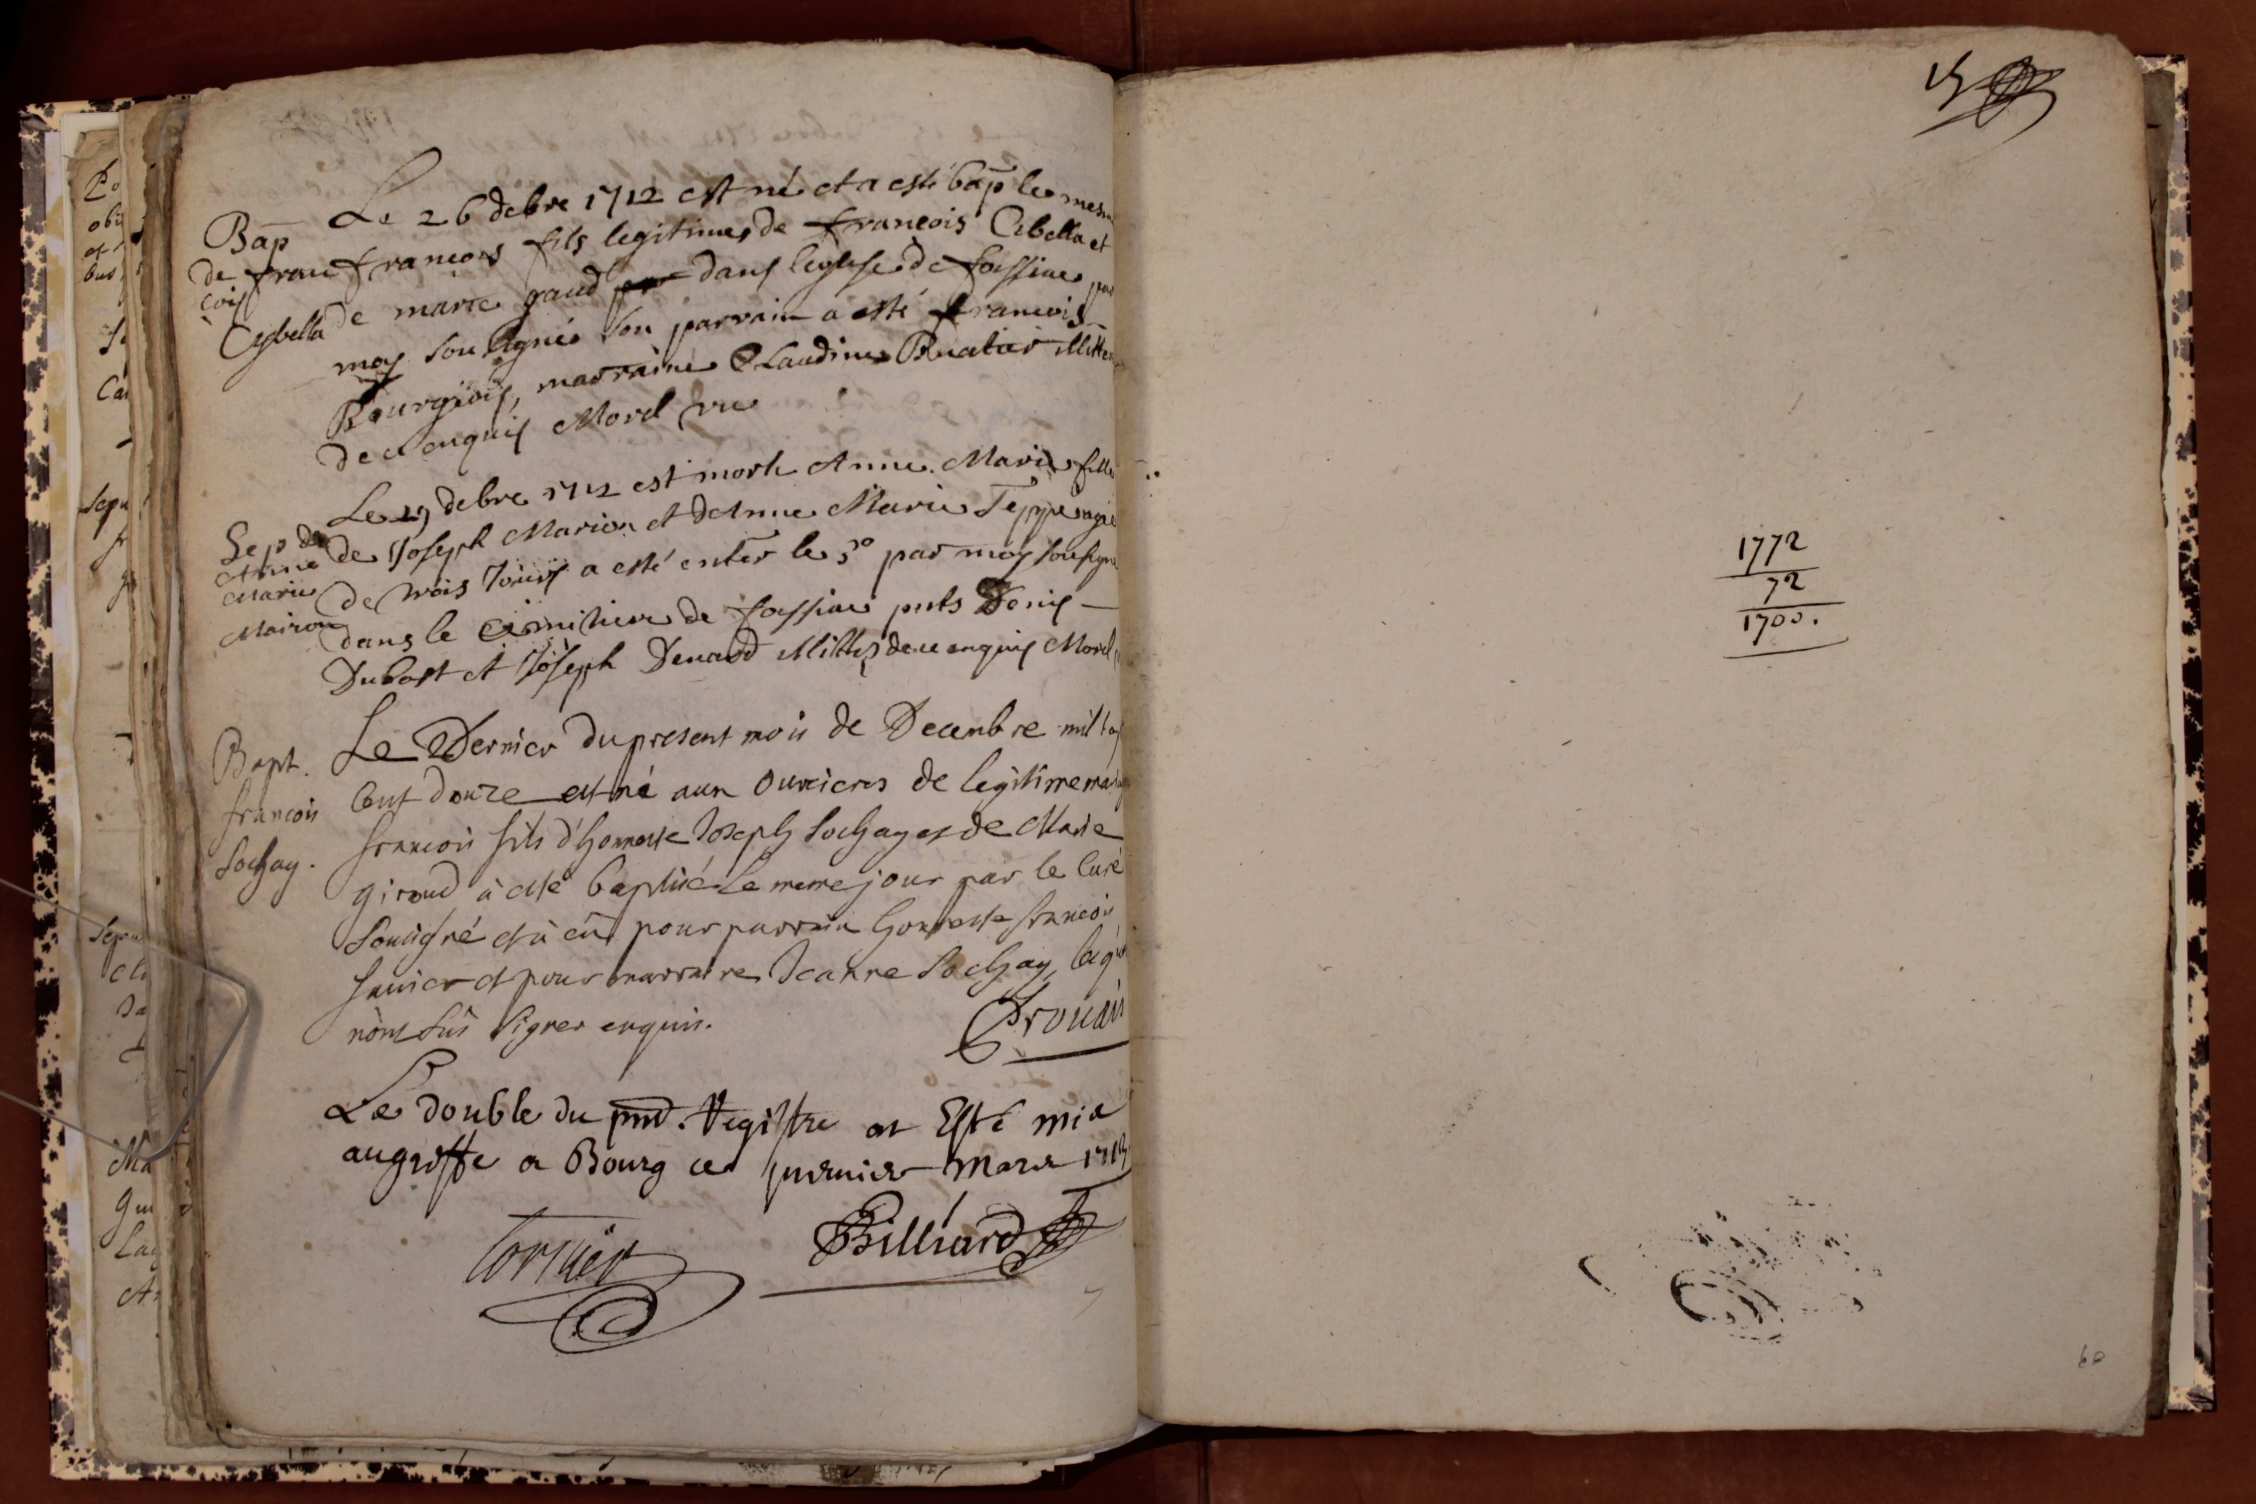 Bap
de fran
cois
Cybella
Le 26 debre 1712 est né et a esté bap le mesm
francois fils legitime de francois Cibella et
de marie gaud dans leglise de foissiae par
moy soussigné son parrain a esté francois
Bourgeois, marraine Claudine Buatier illitter
de ce enquis Morel vic
Sep de
Anne
Marie
Mairon
Le 29 debre 1712 est morte Anne Marie fille
de Joseph Marion et de Anne Marie Teppe agée
de trois Jours a esté enter le 30 par moy sousigné
dans le cimitiere de foissiae pnts Denis
Dubost et Joseph Denard illitter de ce enquis Morel
Bapt.
francois
Sochay.
Le Dernier du present mois de Decembre mil sep
cent douze est né aux Ouvieres de legitime maria
francois fils d'honneste Joseph Sochay et de Marie
giroud à esté baptisé le meme jour par le Curé
sousigné et à eû pour parrain honneste francois
Janier et pour marraine Jeanne Sochay, lesq
nont sus signer enquis.
Drouain
Le double du pnt. Registre at Esté mis
au greffe a Bourg ce premier Mars 1713
Cortier
Billiard
15
1772
72
1700.
60
Po
Ca
Sepu
Sepu
Ma